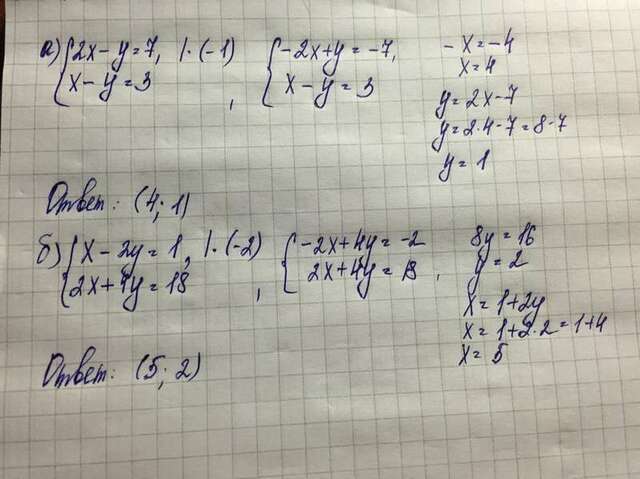 а) {2x - y = 7, | · (-1)
x - y = 3 ,
{-2x + y = -7,
x - y = 3
-x = -4
x = 4
y = 2x - 7
y = 2·4 - 7 = 8 - 7
y = 1
Ответ: (4; 1)
б) {x - 2y = 1, | · (-2)
2x + 4y = 18 ,
{-2x + 4y = -2
2x + 4y = 18 ,
8y = 16
y = 2
x = 1 + 2y
x = 1 + 2·2 = 1 + 4
x = 5
Ответ: (5; 2)